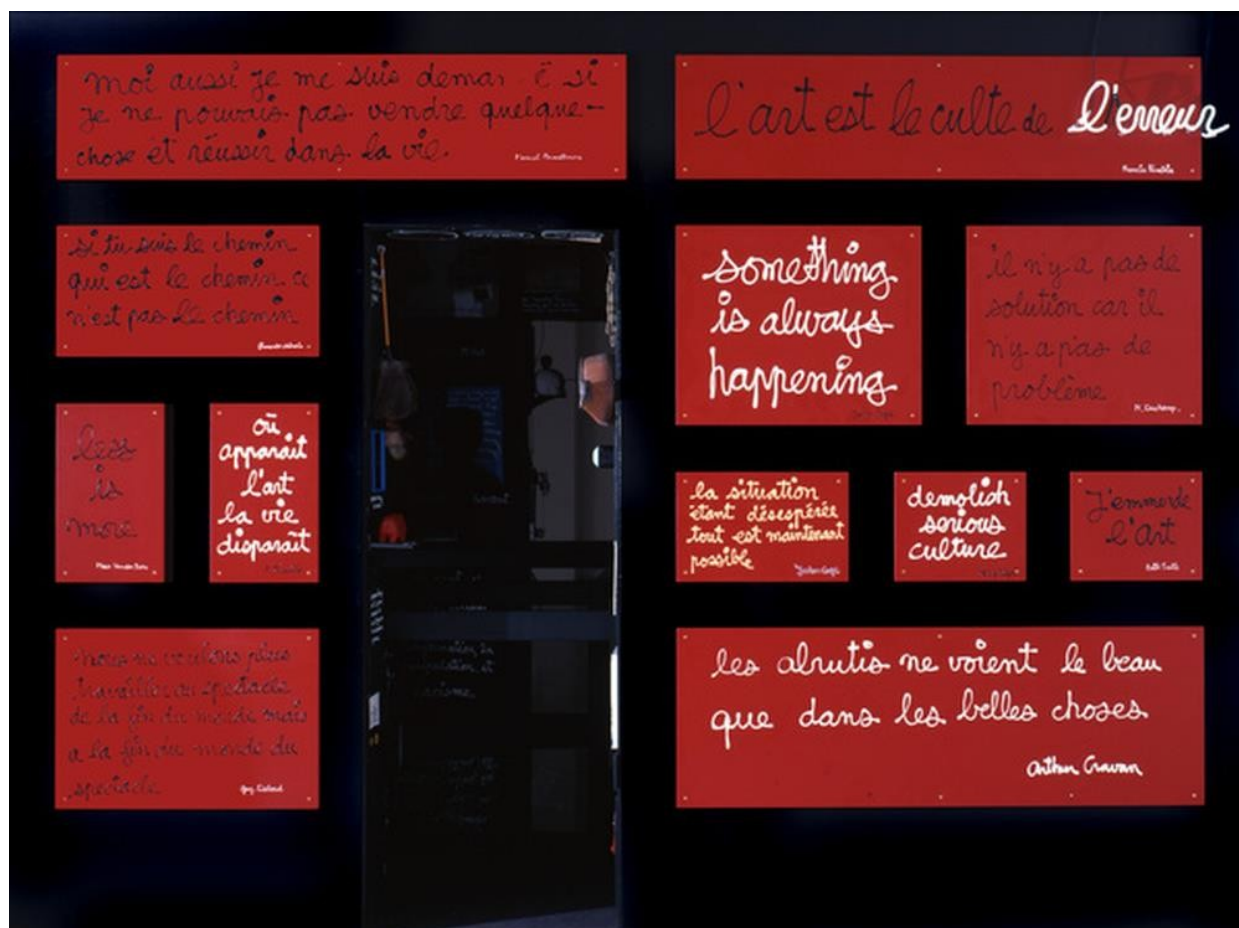 moi aussi je me suis deman é si
je ne pouvais pas vendre quelque-
chose et réussir dans la vie.
l'art est le culte de l'erreur
si tu suis le chemin
qui est le chemin ce
n'est pas le chemin
something
is always
happening
il n'y a pas de
solution car il
n'y a pas de
problème
less
is
more
où
apparaît
l'art
la vie
disparaît
la situation
étant désespérée
tout est maintenant
possible
demolish
serious
culture
J'emmerde
l'Art
nous ne voulons plus
travailler au spectacle
de la fin du monde mais
a la fin du monde du
spectacle
Guy Debord
les abrutis ne voient le beau
que dans les belles choses
Arthur Cravan